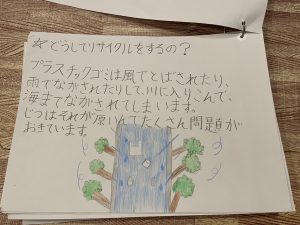 ☆どうしてリサイクルをするの？
プラスチックゴミは風でとばされたり、
雨でながされたりして、川に入りこんで、
海までながされてしまいます。
じつはそれが原いんでたくさん問題が
おきています。